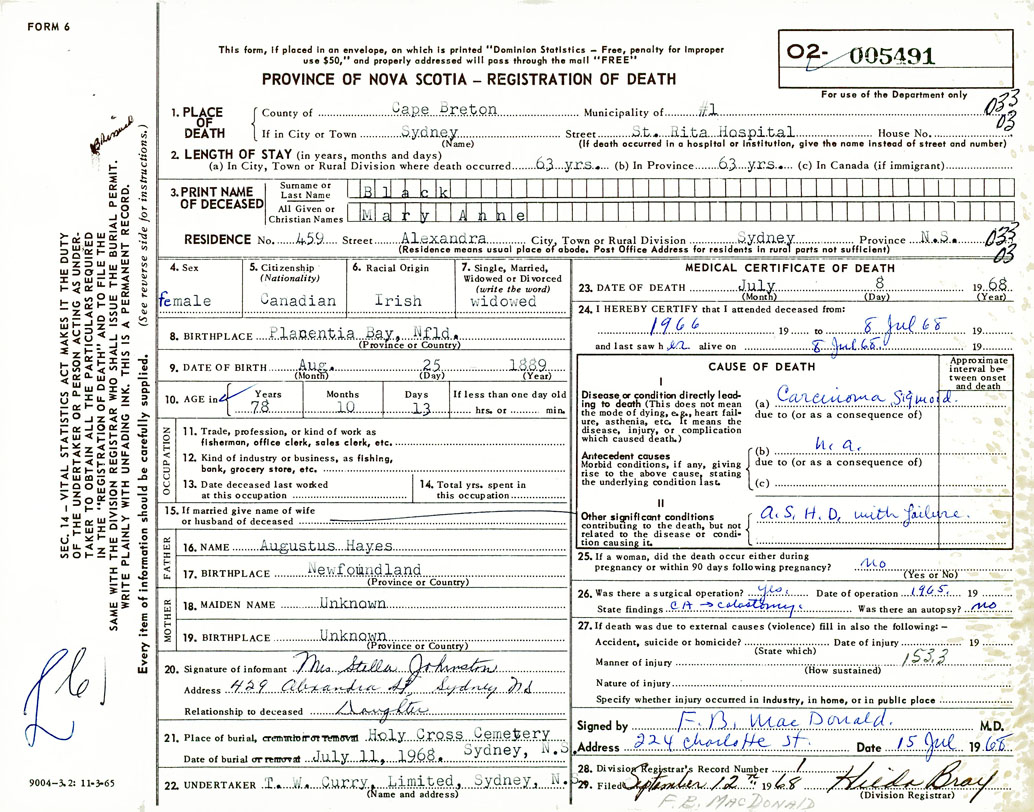 FORM 6
This form, if placed in an envelope, on which is printed "Dominion Statistics – Free, penalty for improper
use $50," and properly addressed will pass through the mail "FREE"
PROVINCE OF NOVA SCOTIA – REGISTRATION OF DEATH
02- 005491
For use of the Department only
033
03
1. PLACE OF DEATH
County of Cape Breton Municipality of #1
If in City or Town Sydney Street St. Rita Hospital House No.
(Name) (If death occurred in a hospital or institution, give the name instead of street and number)
2. LENGTH OF STAY (in years, months and days)
(a) In City, Town or Rural Division where death occurred 63 yrs. (b) In Province 63 yrs. (c) In Canada (if immigrant)
3. PRINT NAME OF DECEASED
Surname or Last Name Black
All Given or Christian Names Mary Anne
RESIDENCE No. 459 Street Alexandra City, Town or Rural Division Sydney Province N.S. 033
(Residence means usual place of abode. Post Office Address for residents in rural parts not sufficient) 03
4. Sex
female
5. Citizenship
(Nationality)
Canadian
6. Racial Origin
Irish
7. Single, Married,
Widowed or Divorced
(write the word)
widowed
8. BIRTHPLACE Placentia Bay, Nfld.
(Province or Country)
9. DATE OF BIRTH Aug. 25 1889
(Month) (Day) (Year)
10. AGE in Years Months Days If less than one day old
78 10 13 hrs. or min.
OCCUPATION
11. Trade, profession, or kind of work as
fisherman, office clerk, sales clerk, etc.
12. Kind of industry or business, as fishing,
bank, grocery store, etc.
13. Date deceased last worked
at this occupation
14. Total yrs. spent in
this occupation
15. If married give name of wife
or husband of deceased
FATHER
16. NAME Augustus Hayes
17. BIRTHPLACE Newfoundland
(Province or Country)
MOTHER
18. MAIDEN NAME Unknown
19. BIRTHPLACE Unknown
(Province or Country)
20. Signature of informant Mrs Stella Johnston
Address 429 Alexandra St, Sydney NS
Relationship to deceased Daughter
21. Place of burial, cremation or removal Holy Cross Cemetery
Sydney, N.S.
Date of burial or removal July 11, 1968.
22. UNDERTAKER T. W. Curry, Limited, Sydney, N.S.
(Name and address)
MEDICAL CERTIFICATE OF DEATH
23. DATE OF DEATH July 8 1968
(Month) (Day) (Year)
24. I HEREBY CERTIFY that I attended deceased from:
1966 19 to 8 Jul 68 19
and last saw her alive on 8 Jul 68. 19
CAUSE OF DEATH
Approximate
interval be-
tween onset
and death
I
Disease or condition directly lead-
ing to death (This does not mean
the mode of dying, e.g., heart fail-
ure, asthenia, etc. It means the
disease, injury, or complication
which caused death.)
(a) Carcinoma Sigmoid.
due to (or as a consequence of)
Antecedent causes
Morbid conditions, if any, giving
rise to the above cause, stating
the underlying condition last.
(b) n.a.
due to (or as a consequence of)
(c)
II
Other significant conditions
contributing to the death, but not
related to the disease or condi-
tion causing it.
A.S.H.D. with failure.
25. If a woman, did the death occur either during
pregnancy or within 90 days following pregnancy? no
(Yes or No)
26. Was there a surgical operation? yes. Date of operation 1965. 19
State findings CA → colostomy. Was there an autopsy? no
27. If death was due to external causes (violence) fill in also the following: –
Accident, suicide or homicide? Date of injury 19
(State which)
Manner of injury 153.3
(How sustained)
Nature of injury
Specify whether injury occurred in industry, in home, or in public place
Signed by F. B. MacDonald. M.D.
Address 224 Charlotte St. Date 15 Jul 1968
28. Division Registrar's Record Number 1
29. Filed September 12th 1968 Hilda Bray
(Division Registrar)
F. B. MACDONALD
SEC. 14 – VITAL STATISTICS ACT MAKES IT THE DUTY
OF THE UNDERTAKER OR PERSON ACTING AS UNDER-
TAKER TO OBTAIN ALL THE PARTICULARS REQUIRED
IN THE "REGISTRATION OF DEATH" AND TO FILE THE
SAME WITH THE DIVISION REGISTRAR WHO SHALL ISSUE THE BURIAL PERMIT.
WRITE PLAINLY WITH UNFADING INK. THIS IS A PERMANENT RECORD.
Every item of information should be carefully supplied. (See reverse side for instructions.)
9004–3.2: 11-3-65